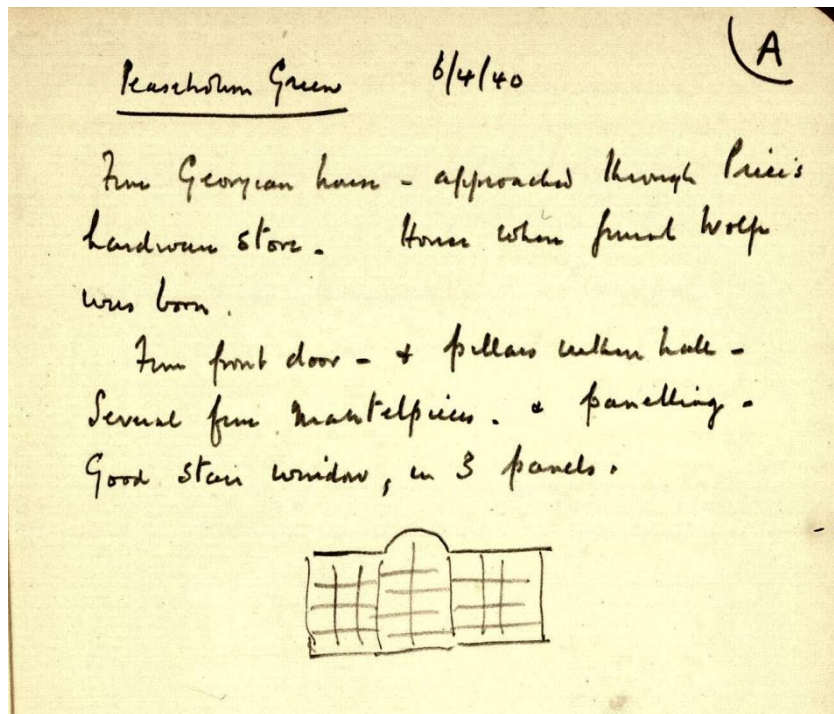 A
Peaseholm Green 6/4/40
Fine Georgian house - approached through Price's
hardware store. House where General Wolfe
was born.
Fine front door - & pillars within hall -
Several fine mantelpieces. & panelling -
Good stair window, in 3 panels.